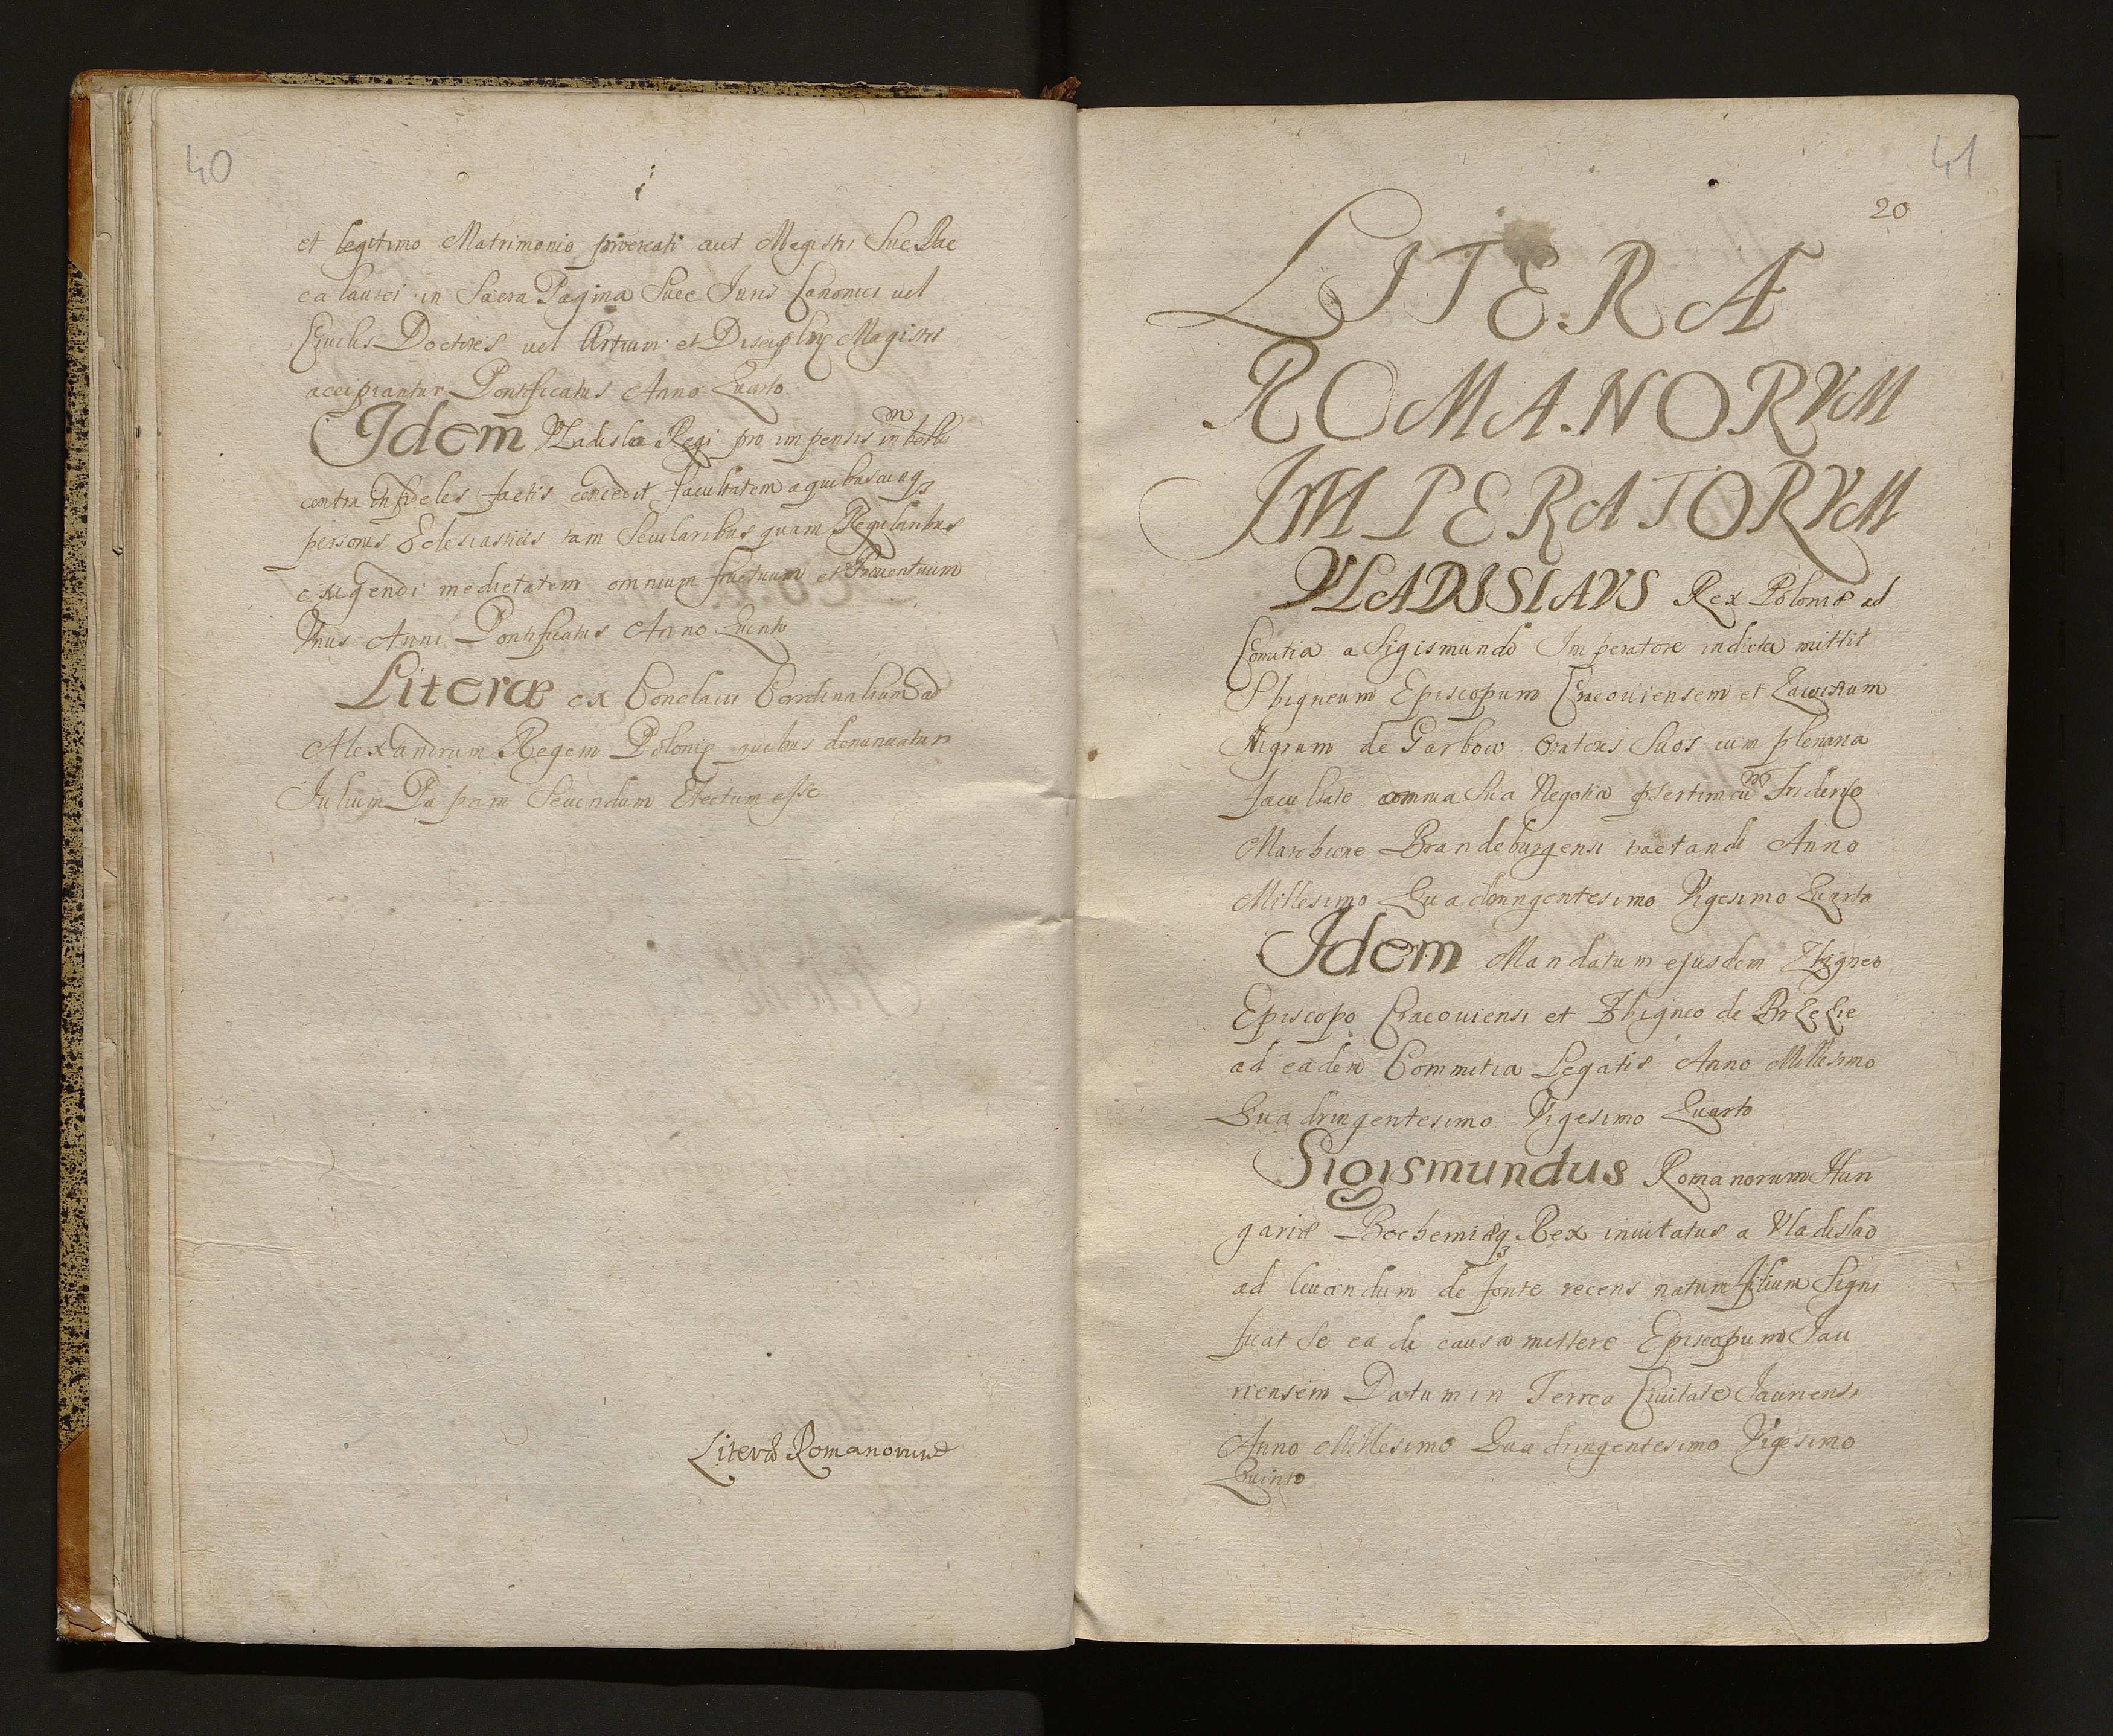 40
et legitimo Matrimonio procreati aut Magistri Siue Bac
calaurei in Sacra Pagina Siue Iuris Canonici uel
Ciuilis Doctores uel Artium et Disciplinę Magistri
accipiantur Pontificatus Anno Quarto
Idem Vladislao Regi pro impensis in bello
contra infideles factis concedit facultatem a quibuscunqȝ
personis Eclesiasticis tam Secularibus quam Regularibus
exigendi medietatem omnium fructuum et Prouentuum
Vnius Anni Pontificatus Anno Quinto
Literæ ex Conclaui Cardinalium ad
Alexandrum Regem Polonię quibus denunciatur
Iulium Papam Secundum Electum esse
Literæ Romanorum
41
20
LITERÆ
ROMANORVM
IMPERATORVM
VLADISLAVS Rex Poloniæ ad
Comitia a Sigismundo Imperatore indicta mittit
Sbigneum Episcopum Cracouiensem et Zawissum
Nigrum de Garbow Oratores Suos cum plenaria
facultate omnia Sua Negotia psertim cum Friderico
Marchione Brandeburgensi tractandi Anno
Millesimo Quadringentesimo Vigesimo Quarto
Idem Mandatum ejusdem Zbigneo
Episcopo Cracouiensi et Zbigneo de Brzezie
ad eadem Commitia Legatis Anno Millesimo
Quadringentesimo Vigesimo Quarto
Sigismundus Romanorum Hun
gariæ Bochemiæqȝ Rex inuitatus a Vladislao
ad leuandum de fonte recens natum filium Signi
ficat Se ea de causa mittere Episcopum Iau
riensem Datum in Terrea Ciuitate Iauriensi
Anno Millesimo Quadringentesimo Vigesimo
Quinto